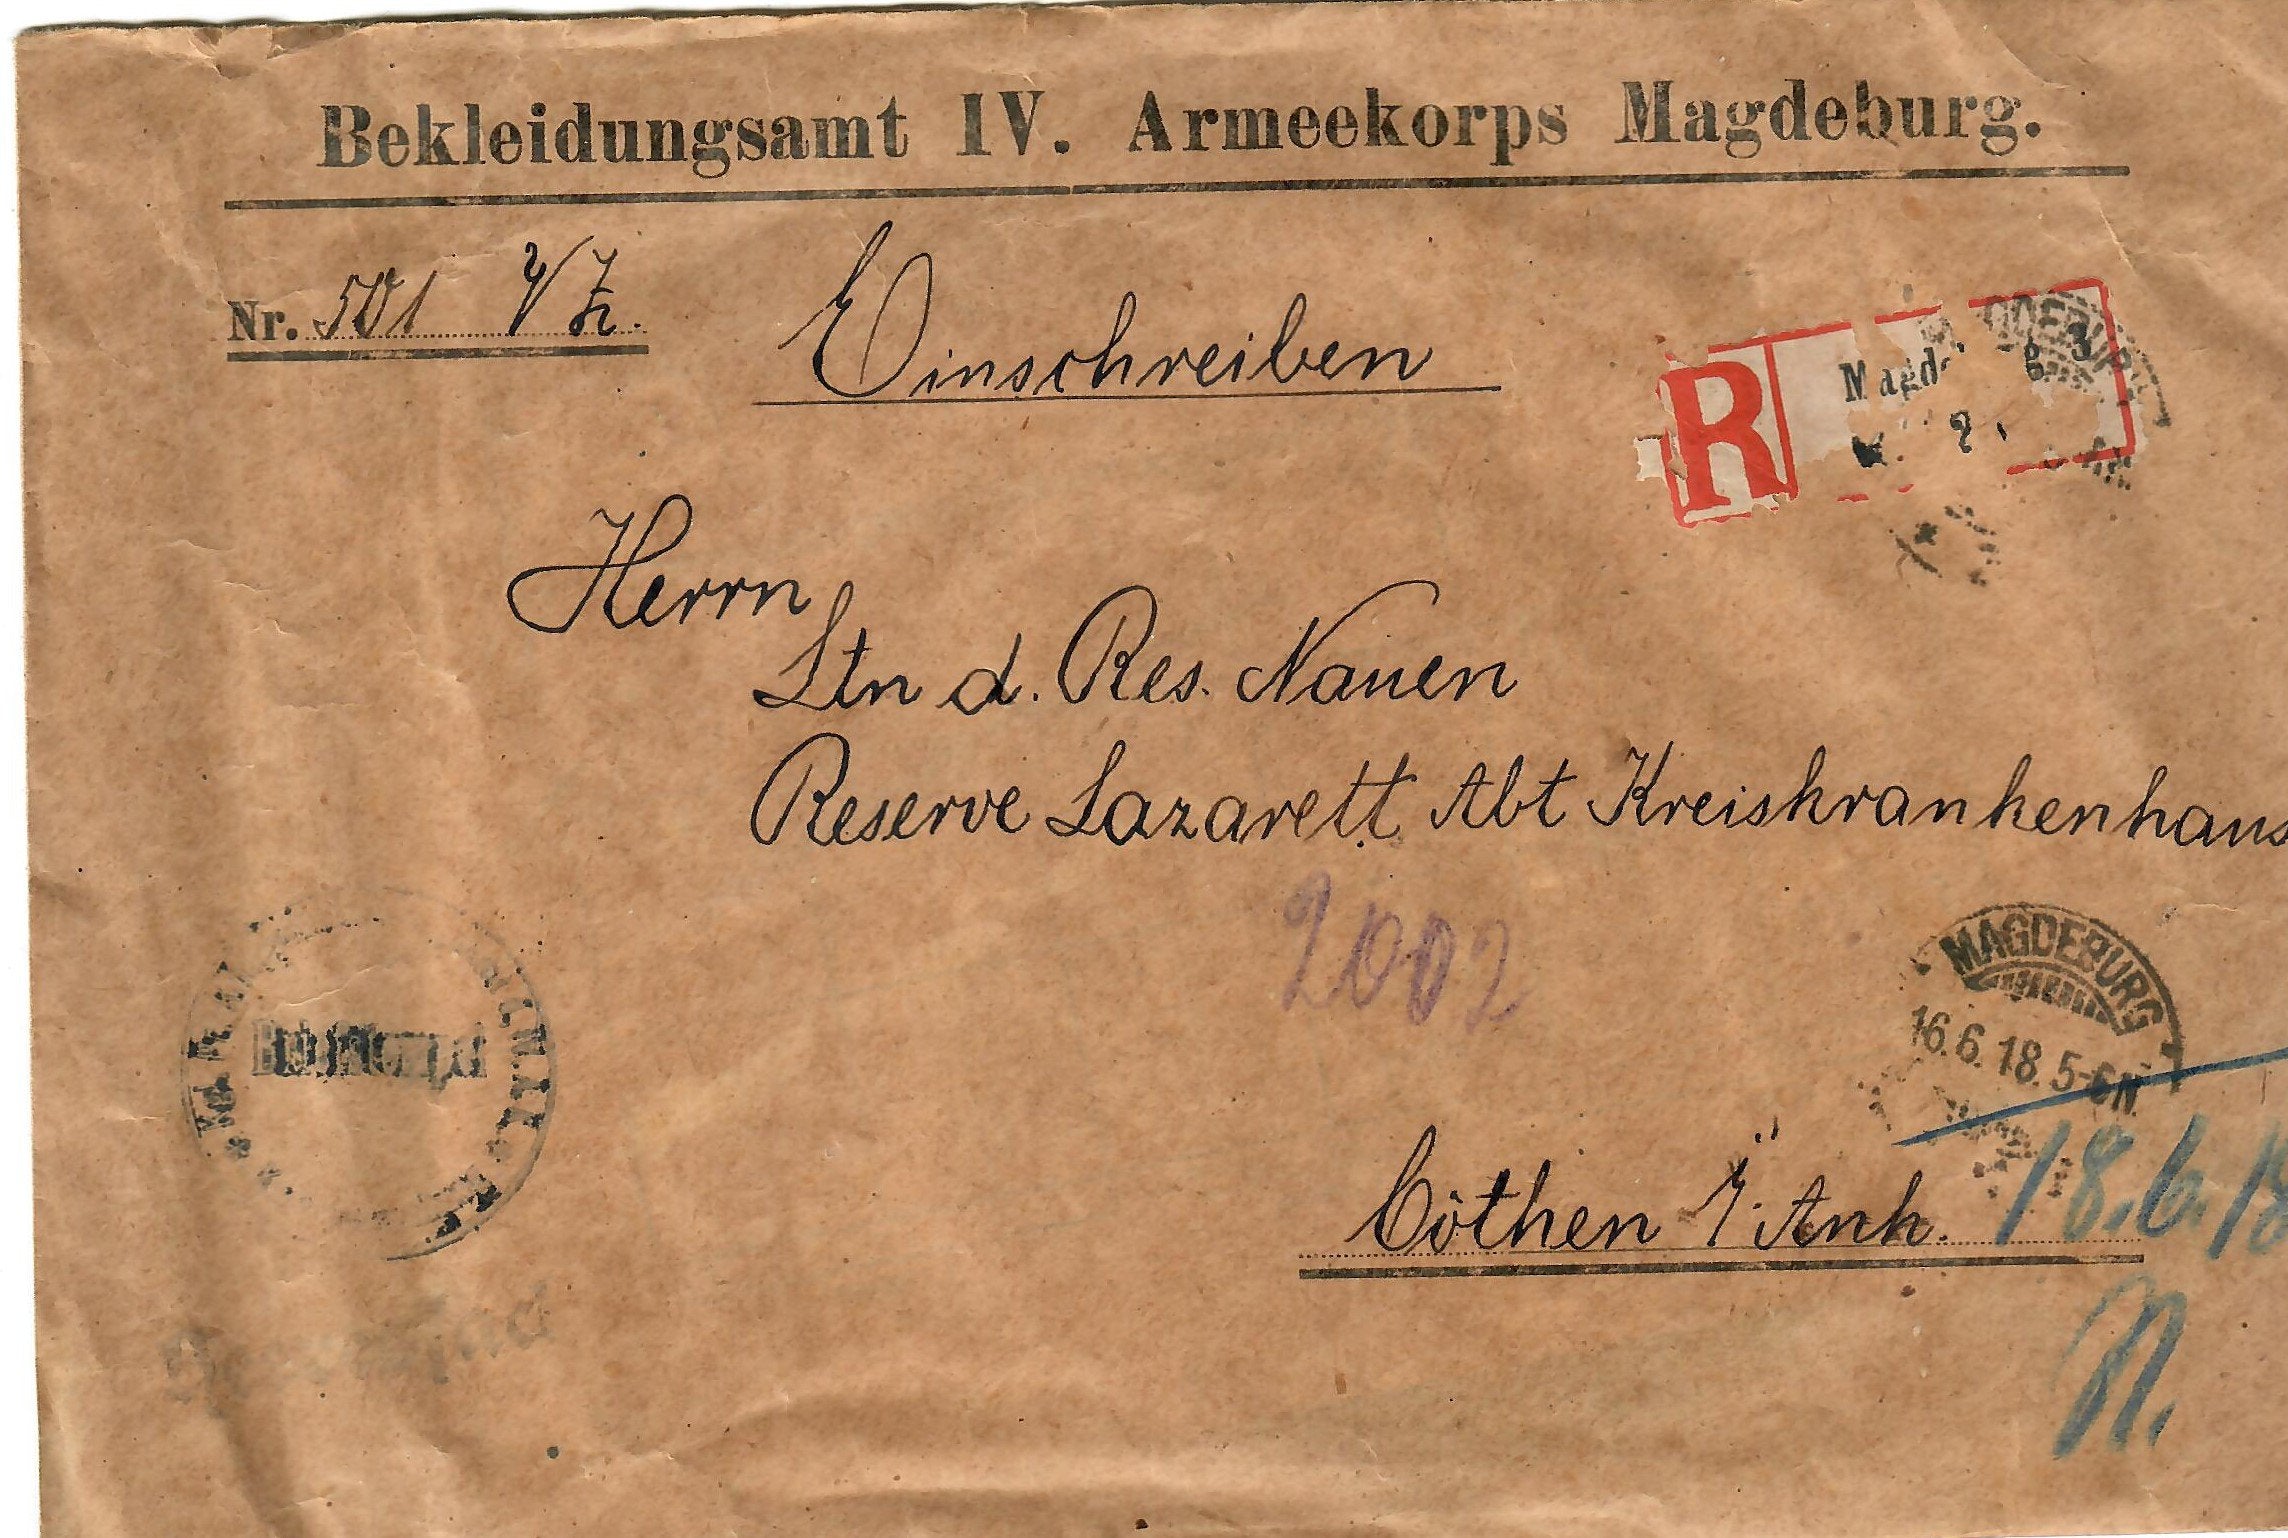 Bekleidungsamt IV. Armeekorps Magdeburg.
Nr. 501
Einschreiben
R
Magd g. 3
2
Herrn
Ltn d. Res. Nauen
Reserve Lazarett Abt Kreiskrankenhaus
2002
MAGDEBURG
16.6.18. 5-6N.
Cöthen i. Anh.
18.6.18
N.